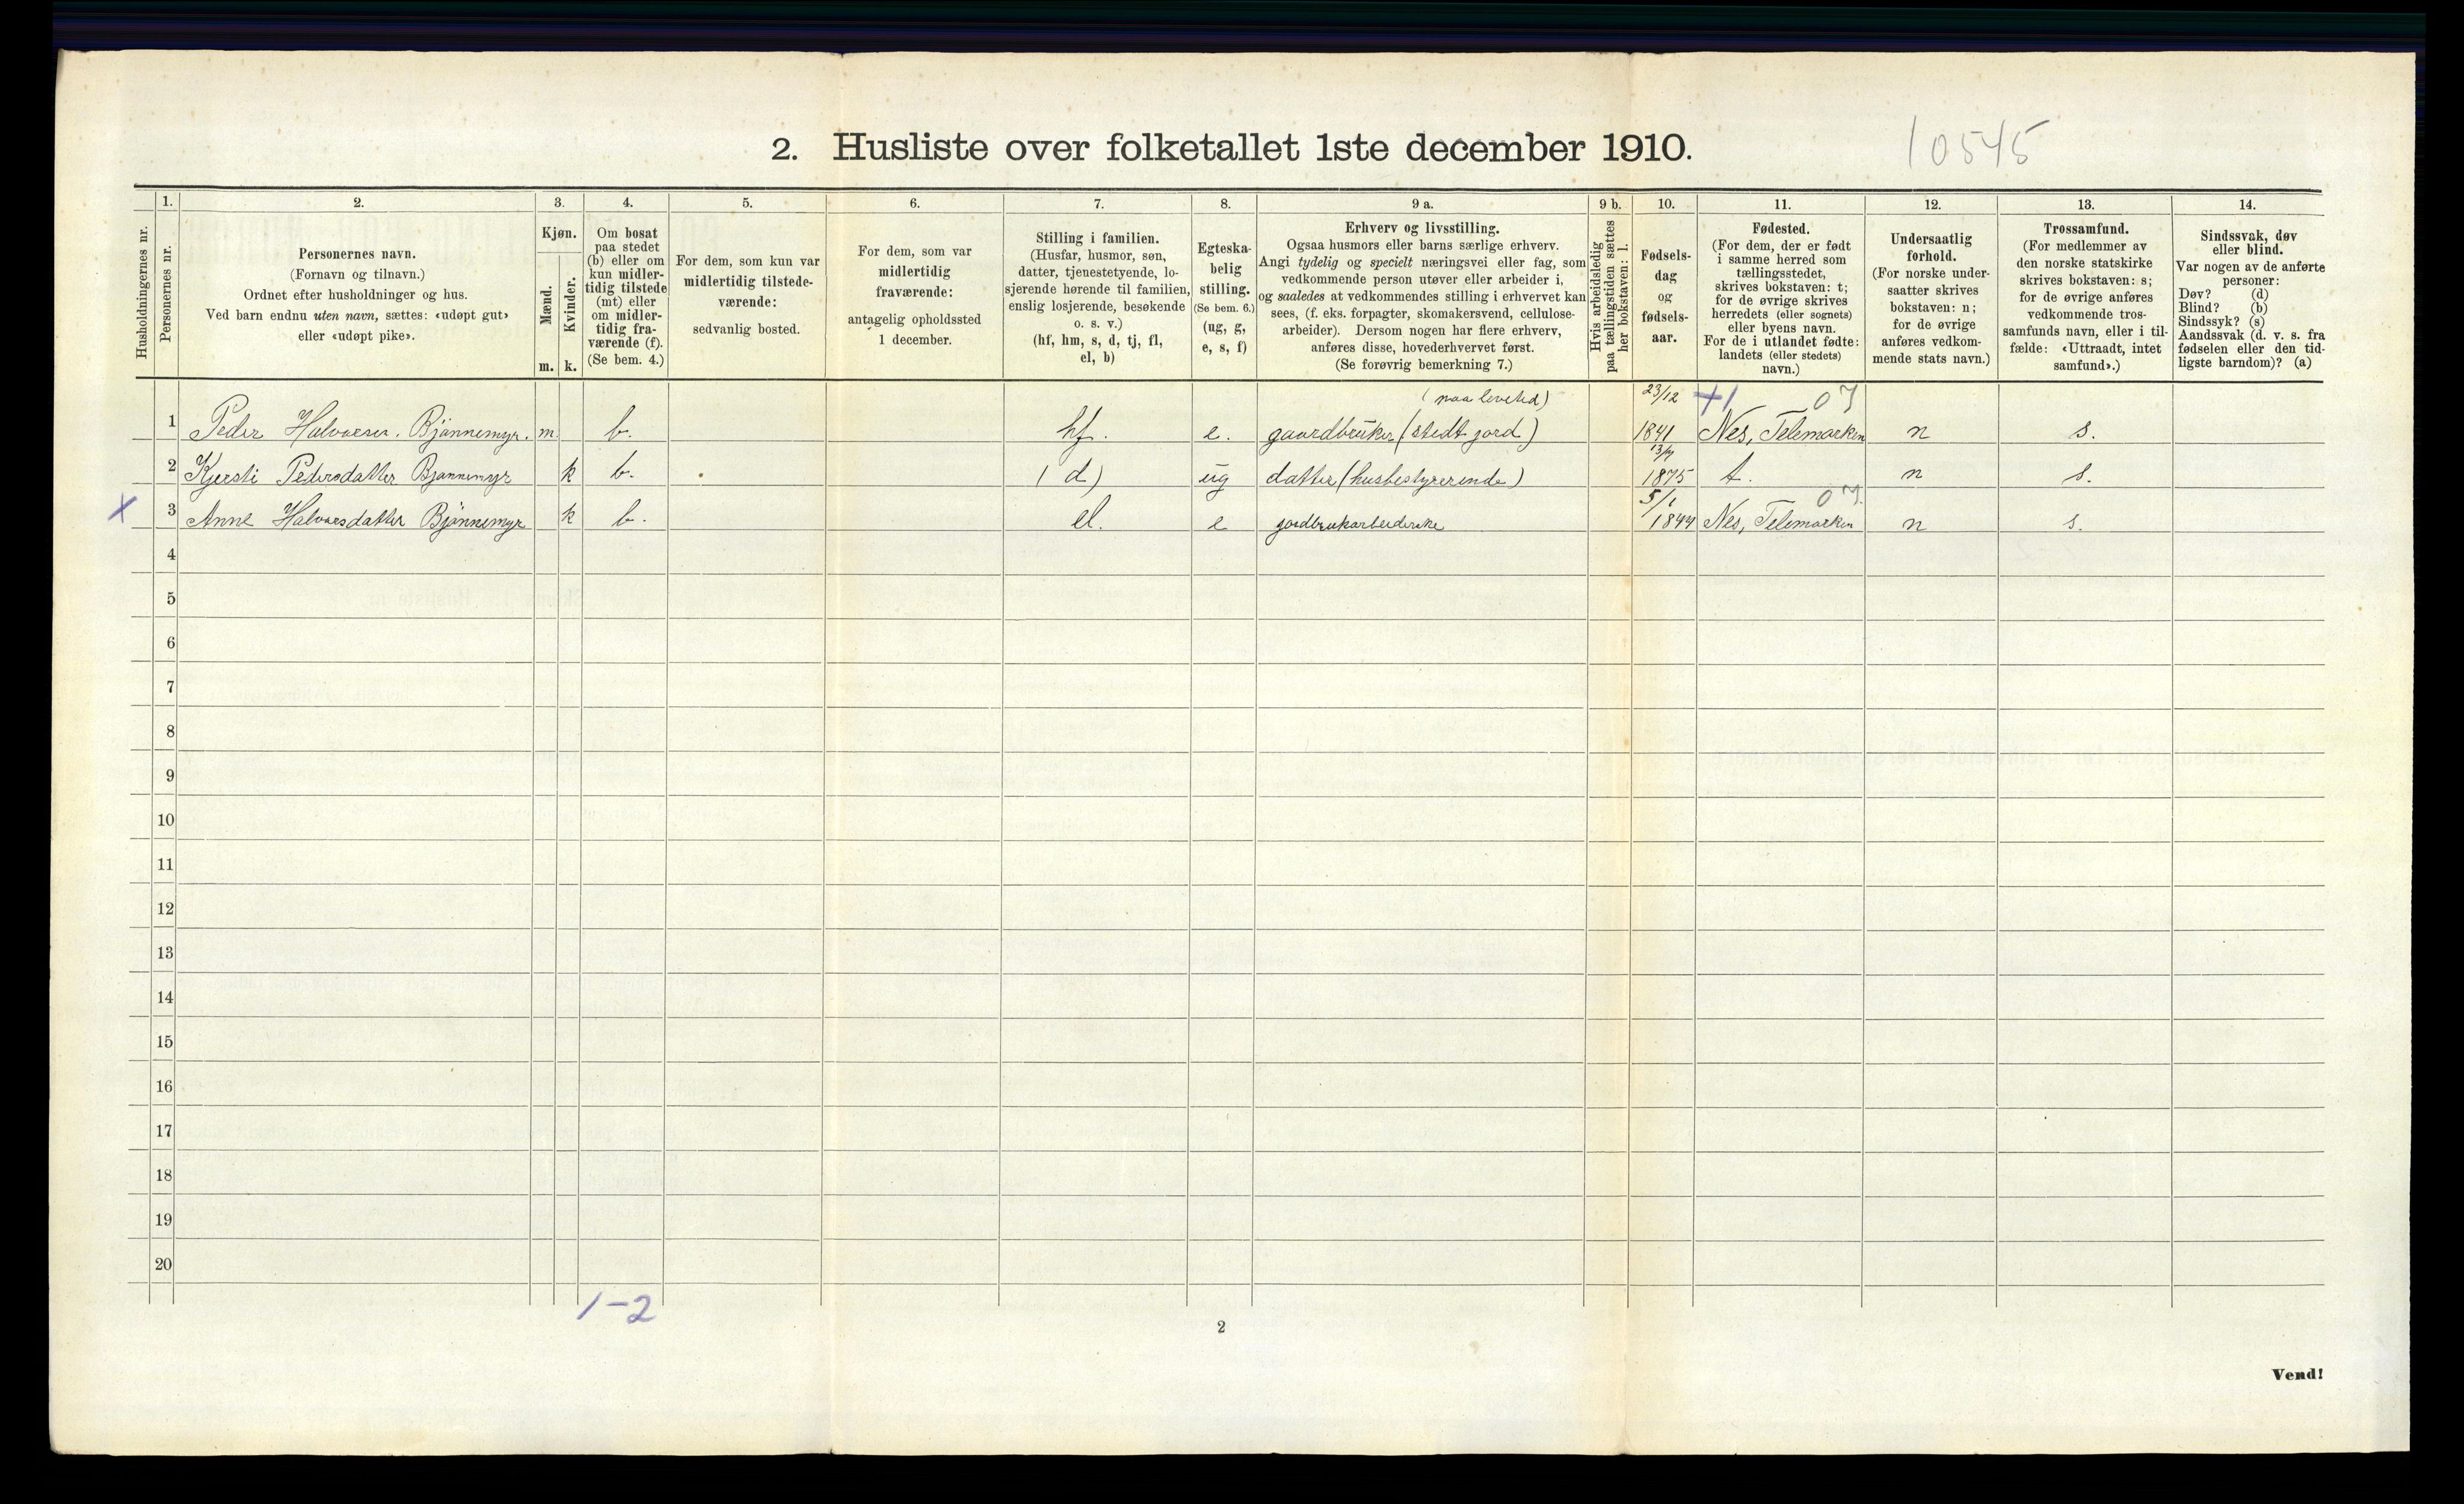 2. Husliste over folketallet 1ste december 1910.
10545
Husholdningernes nr.
1.
Personernes nr.
2.
Personernes navn.
(Fornavn og tilnavn.)
Ordnet efter husholdninger og hus.
Ved barn endnu uten navn, sættes: «udøpt gut»
eller «udøpt pike».
3.
Kjøn.
Mænd.
Kvinder.
m. k.
4.
Om bosat
paa stedet
(b) eller om
kun midler-
tidig tilstede
(mt) eller
om midler-
tidig fra-
værende (f).
(Se bem. 4.)
5.
For dem, som kun var
midlertidig tilstede-
værende:
sedvanlig bosted.
6.
For dem, som var
midlertidig
fraværende:
antagelig opholdssted
1 december.
7.
Stilling i familien.
(Husfar, husmor, søn,
datter, tjenestetyende, lo-
sjerende hørende til familien,
enslig losjerende, besøkende
o. s. v.)
(hf, hm, s, d, tj, fl,
el, b)
8.
Egteska-
belig
stilling.
(Se bem. 6.)
(ug, g,
e, s, f)
9 a.
Erhverv og livsstilling.
Ogsaa husmors eller barns særlige erhverv.
Angi tydelig og specielt næringsvei eller fag, som
vedkommende person utøver eller arbeider i,
og saaledes at vedkommendes stilling i erhvervet kan
sees, (f. eks. forpagter, skomakersvend, cellulose-
arbeider). Dersom nogen har flere erhverv,
anføres disse, hovederhvervet først.
(Se forøvrig bemerkning 7.)
9 b.
Hvis arbeidsledig
paa tællingstiden sættes
her bokstaven: l.
10.
Fødsels-
dag
og
fødsels-
aar.
11.
Fødested.
(For dem, der er født
i samme herred som
tællingsstedet,
skrives bokstaven: t;
for de øvrige skrives
herredets (eller sognets)
eller byens navn.
For de i utlandet fødte:
landets (eller stedets)
navn.)
12.
Undersaatlig
forhold.
(For norske under-
saatter skrives
bokstaven: n;
for de øvrige
anføres vedkom-
mende stats navn.)
13.
Trossamfund.
(For medlemmer av
den norske statskirke
skrives bokstaven: s;
for de øvrige anføres
vedkommende tros-
samfunds navn, eller i til-
fælde: «Uttraadt, intet
samfund».)
14.
Sindssvak, døv
eller blind.
Var nogen av de anførte
personer:
Døv? (d)
Blind? (b)
Sindssyk? (s)
Aandssvak (d. v. s. fra
fødselen eller den tid-
ligste barndom)? (a)
(paa levetid) 23/12 +1 07
1 Peder Halvorsen. Bjønnemyr. m b. hf. e. gaardbruker (stedt jord) 1841 Nes, Telemarken n s.
13/7
2 Kjersti Pedersdatter Bjønnemyr k b. (d) ug datter (husbestyrerinde) 1875 t. n s.
5/1 07.
X 3 Anne Halvorsdatter Bjønnemyr k b. el. e jordbrukarbeiderske 1844 Nes, Telemarken n s.
4
5
6
7
8
9
10
11
12
13
14
15
16
17
18
19
20
1-2
2
Vend!